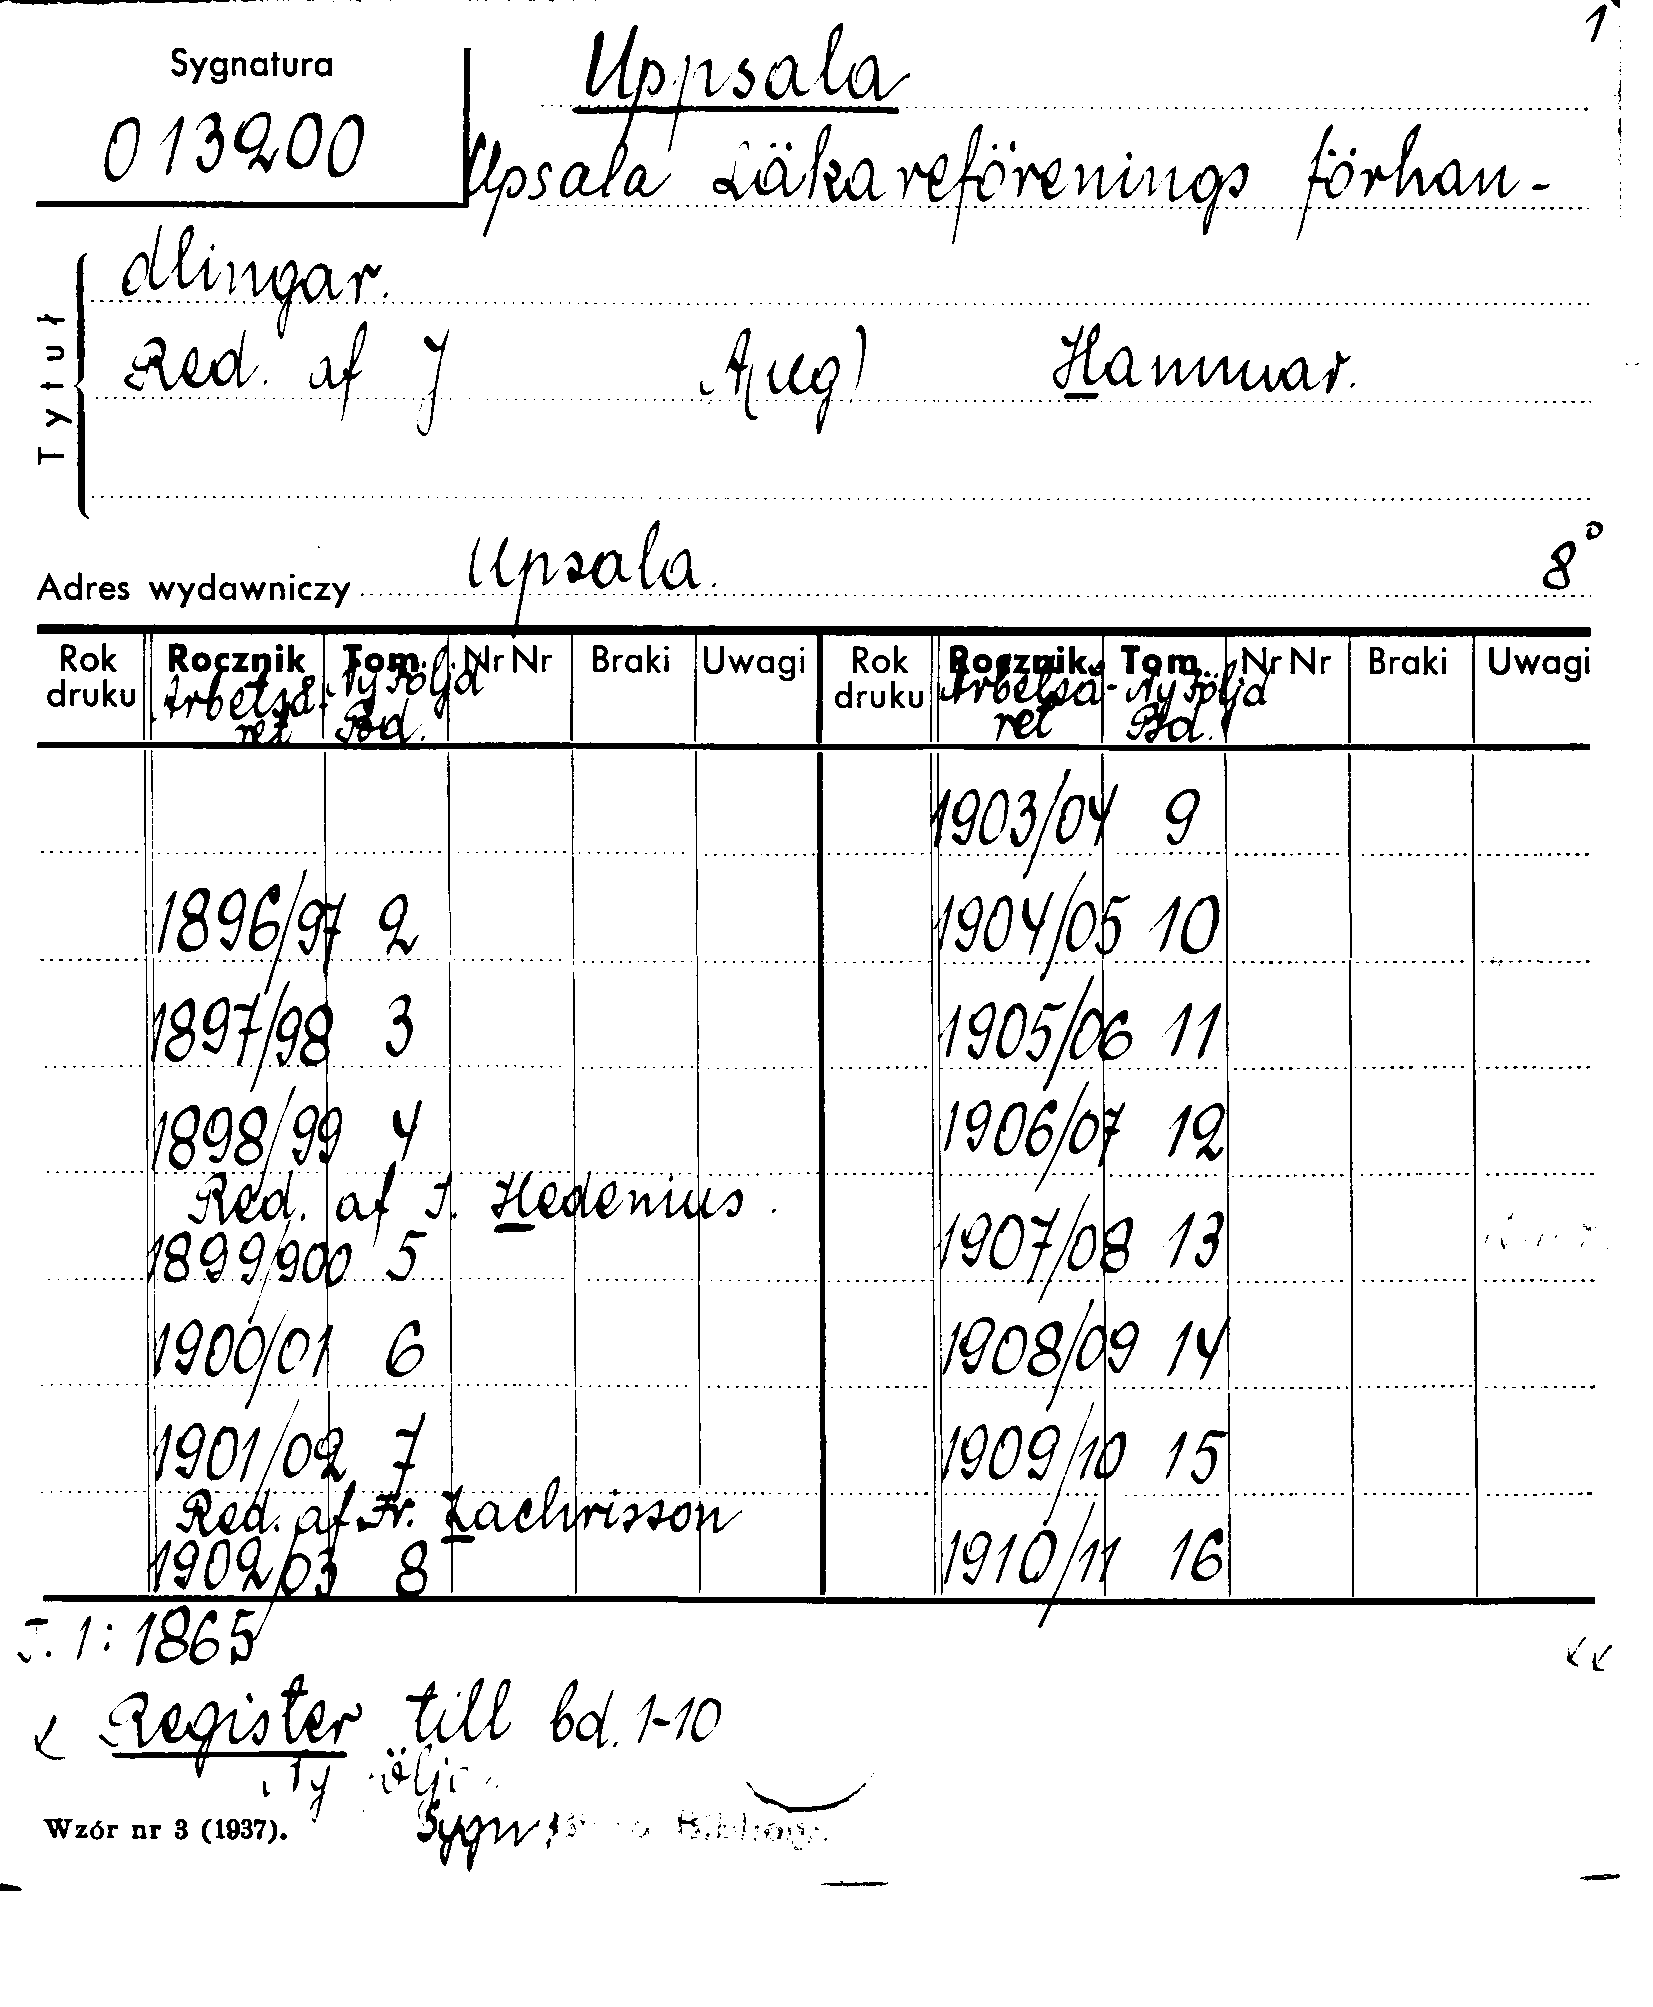 1
Sygnatura
013200
Uppsala
Upsala Läkareförenings förhan-
dlingar.
Tytuł
Red. af J Aug) Hammar.
Adres wydawniczy Upsala. 8°
Rok druku Rocznik Tom NrNr Braki Uwagi Rok druku Rocznik Tom NrNr Braki Uwagi
Arbetså- Ny Följd Arbetså- Ny Följd
ret Bd. ret Bd.
1903/04 9
1896/97 2 1904/05 10
1897/98 3 1905/06 11
1898/99 4 1906/07 12
Red. af J. Hedenius.
1899/900 5 1907/08 13
1900/01 6 1908/09 14
1901/02 7 1909/10 15
Red. af Fr. Zachrisson
1902/03 8 1910/11 16
T. 1: 1865
Register till bd. 1-10
Ny
Wzór nr 3 (1937). Sygn